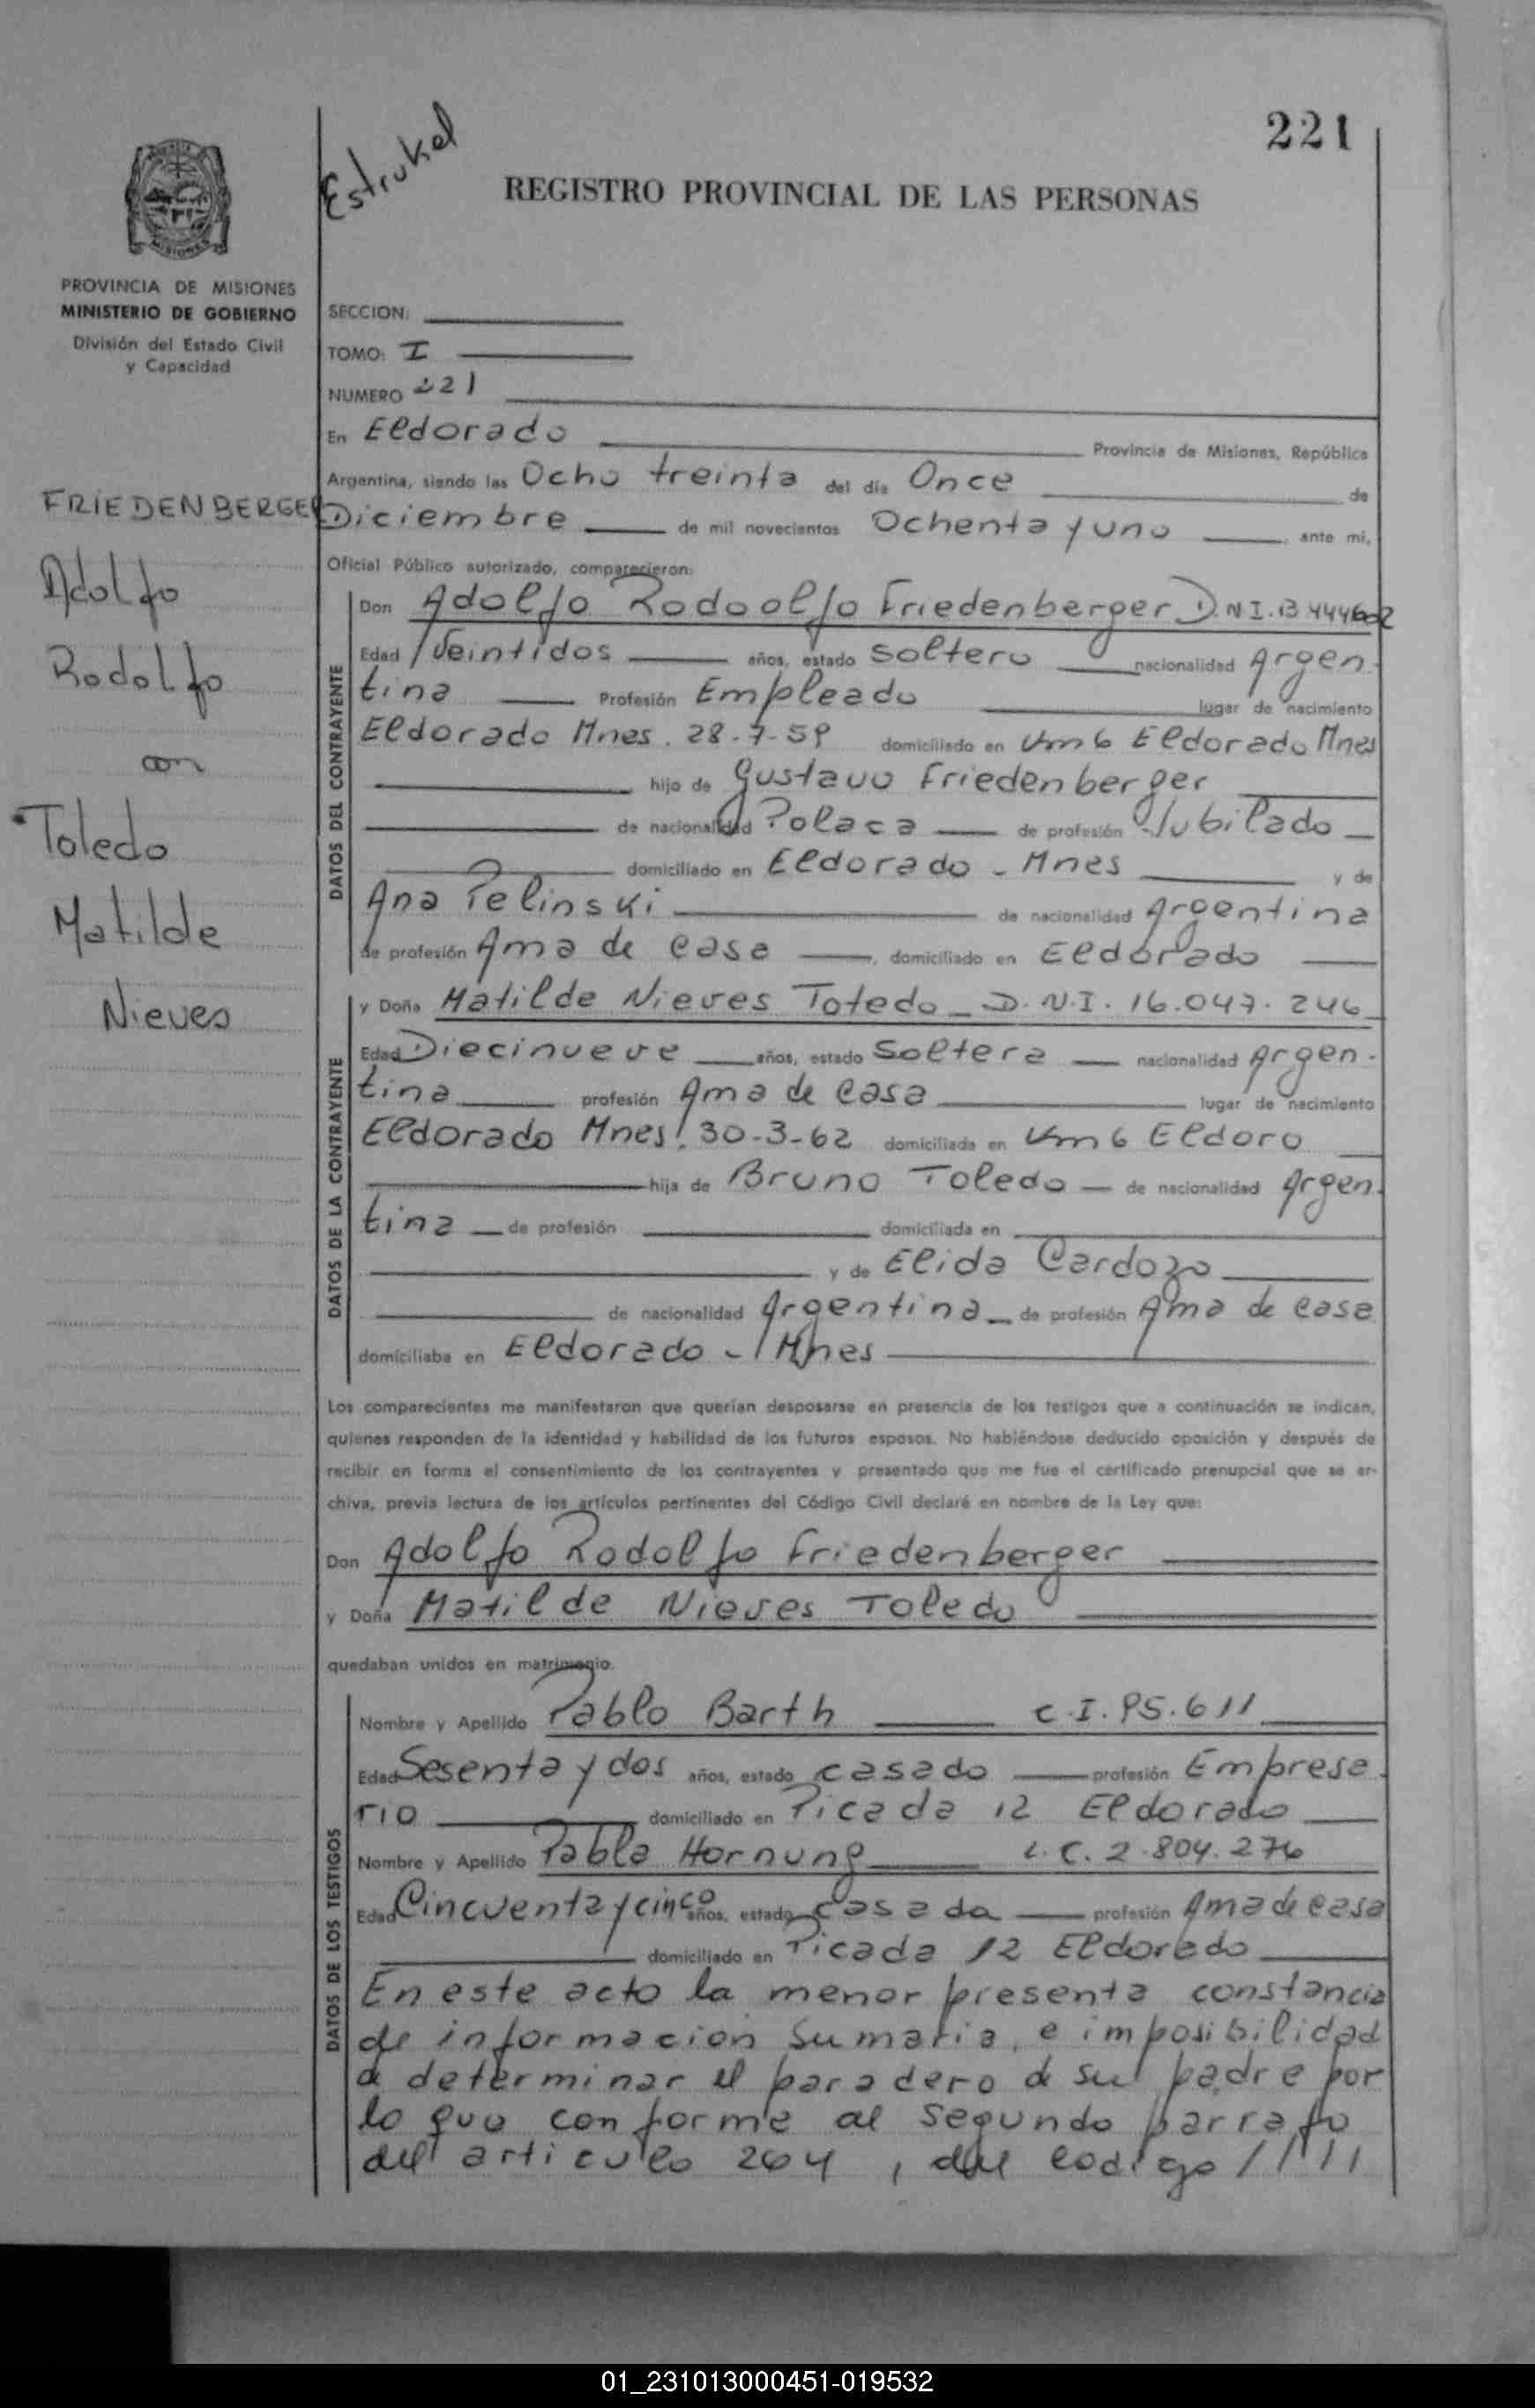 221
Estrukel
REGISTRO PROVINCIAL DE LAS PERSONAS
PROVINCIA DE MISIONES
MINISTERIO DE GOBIERNO
División del Estado Civil
y Capacidad
FRIEDENBERGER
Adolfo
Rodolfo
con
Toledo
Matilde
Nieves
SECCION:
TOMO: I
NUMERO 221
En Eldorado Provincia de Misiones, República
Argentina, siendo las Ocho treinta del día Once de
Diciembre de mil novecientos Ochenta y uno, ante mí,
Oficial Público autorizado, comparecieron:
DATOS DEL CONTRAYENTE
Don Adolfo Rodoolfo Friedenberger D.N.I. 13444602
Edad Veintidos años, estado Soltero nacionalidad Argen-
tina Profesión Empleado lugar de nacimiento
Eldorado Mnes. 28-7-59 domiciliado en Km 6 Eldorado Mnes
hijo de Gustavo Friedenberger
de nacionalidad Polaca de profesión Jubilado
domiciliado en Eldorado - Mnes y de
Ana Pelinski de nacionalidad Argentina
de profesión Ama de casa, domiciliado en Eldorado
DATOS DE LA CONTRAYENTE
y Doña Matilde Nieves Toledo - D.N.I. 16.047.246
Edad Diecinueve años, estado Soltera nacionalidad Argen-
tina profesión Ama de casa lugar de nacimiento
Eldorado Mnes. 30-3-62 domiciliada en Km 6 Eldoro
hija de Bruno Toledo - de nacionalidad Argen-
tina de profesión domiciliada en
y de Elida Cardozo
de nacionalidad Argentina - de profesión Ama de casa
domiciliaba en Eldorado - Mnes
Los comparecientes me manifestaron que querían desposarse en presencia de los testigos que a continuación se indican,
quienes responden de la identidad y habilidad de los futuros esposos. No habiéndose deducido oposición y después de
recibir en forma el consentimiento de los contrayentes y presentado que me fue el certificado prenupcial que se ar-
chiva, previa lectura de los artículos pertinentes del Código Civil declaré en nombre de la Ley que:
Don Adolfo Rodolfo Friedenberger
y Doña Matilde Nieves Toledo
quedaban unidos en matrimonio.
DATOS DE LOS TESTIGOS
Nombre y Apellido Pablo Barth C.I. 95.611
Edad Sesenta y dos años, estado casado profesión Empresa-
rio domiciliado en Picada 12 Eldorado
Nombre y Apellido Pabla Hornung L.C. 2.804.276
Edad Cincuenta y cinco años, estado casada profesión Ama de casa
domiciliado en Picada 12 Eldorado
En este acto la menor presenta constancia
de informacion Sumaria, e imposibilidad
de determinar el paradero de su padre por
lo que conforme al segundo parrafo
del articulo 264, del codigo /////
01_231013000451-019532